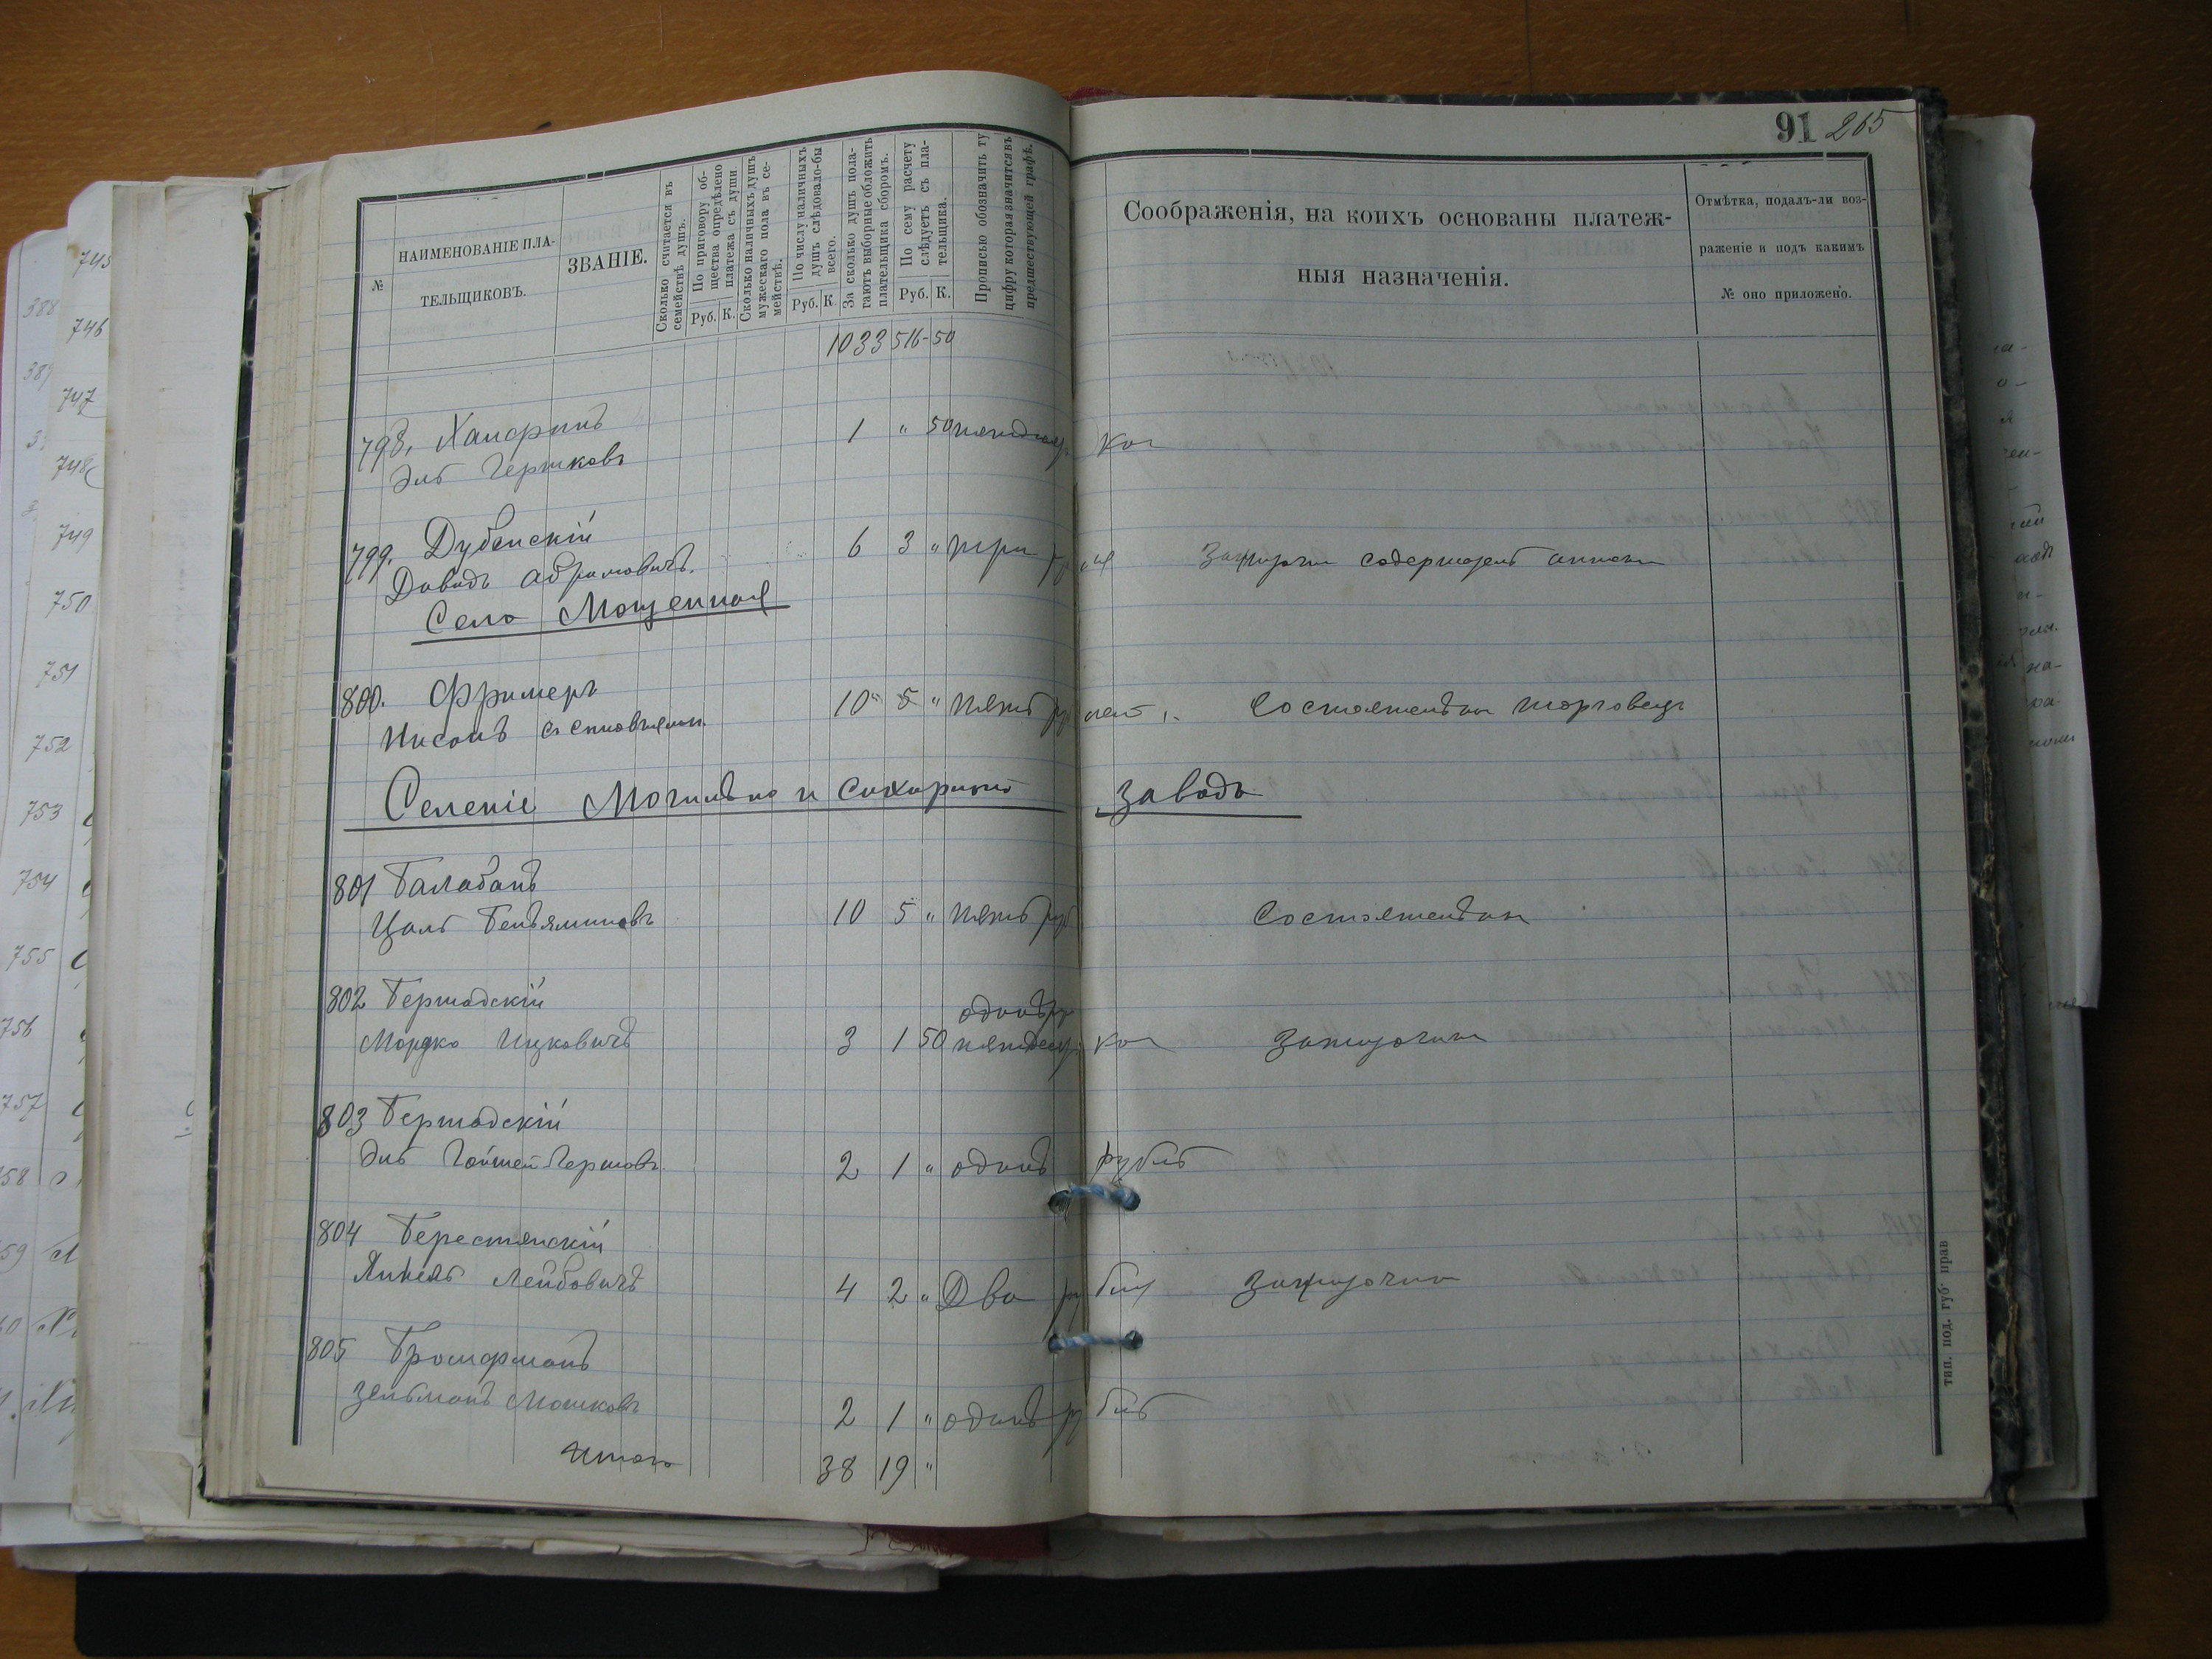 91 265
№
НАИМЕНОВАНІЕ ПЛА-
ТЕЛЬЩИКОВЪ.
ЗВАНІЕ.
Сколько считается въ
семействѣ душъ.
По приговору об-
щества опредѣлено
платежа съ души.
Руб. К.
Сколько наличныхъ душъ
мужескаго пола въ се-
мействѣ.
По числу наличныхъ
душъ слѣдовало-бы
всего.
Руб. К.
За сколько душъ пола-
гаютъ выборные обложить
плательщика сборомъ.
По сему расчету
слѣдуетъ съ пла-
тельщика.
Руб. К.
Прописью обозначить ту
цифру которая значится въ
предшествующей графѣ.
Соображенія, на коихъ основаны платеж-
ныя назначенія.
Отмѣтка, подалъ-ли воз-
раженіе и подъ какимъ
№ оно приложено.
1033 516-50
798.
Эль Гершковъ
1 " 50 пятдесят коп
799. Дубенскій
Давидъ Абрамовичъ. 6 3 " три рубля Зажиточн содержатель
Село Мощенная
800. Фримеръ
Нисонъ съ сыновьями 10 5 " пять рублей Состоятельн торговецъ
Селеніе Могильно и Сахарный заводъ
801 Балабанъ
Цаль Беньяминовъ 10 5 " пять руб Состоятельн
802 Бершадскій
Мордко Ицковичъ 3 1 50 одинъ р пятдесят коп зажиточн
803 Бершадскій
Эль Гершовъ 2 1 " одинъ рубль
804 Берестянскій
Янкель Лейбовичъ 4 2 " Два рубля зажиточн
805
Зельманъ Мошковъ 2 1 " одинъ рубль
Итого 38 19 "
тип. под. губ. прав
745
746
747
748
749
750
751
752
753
754
755
756
757